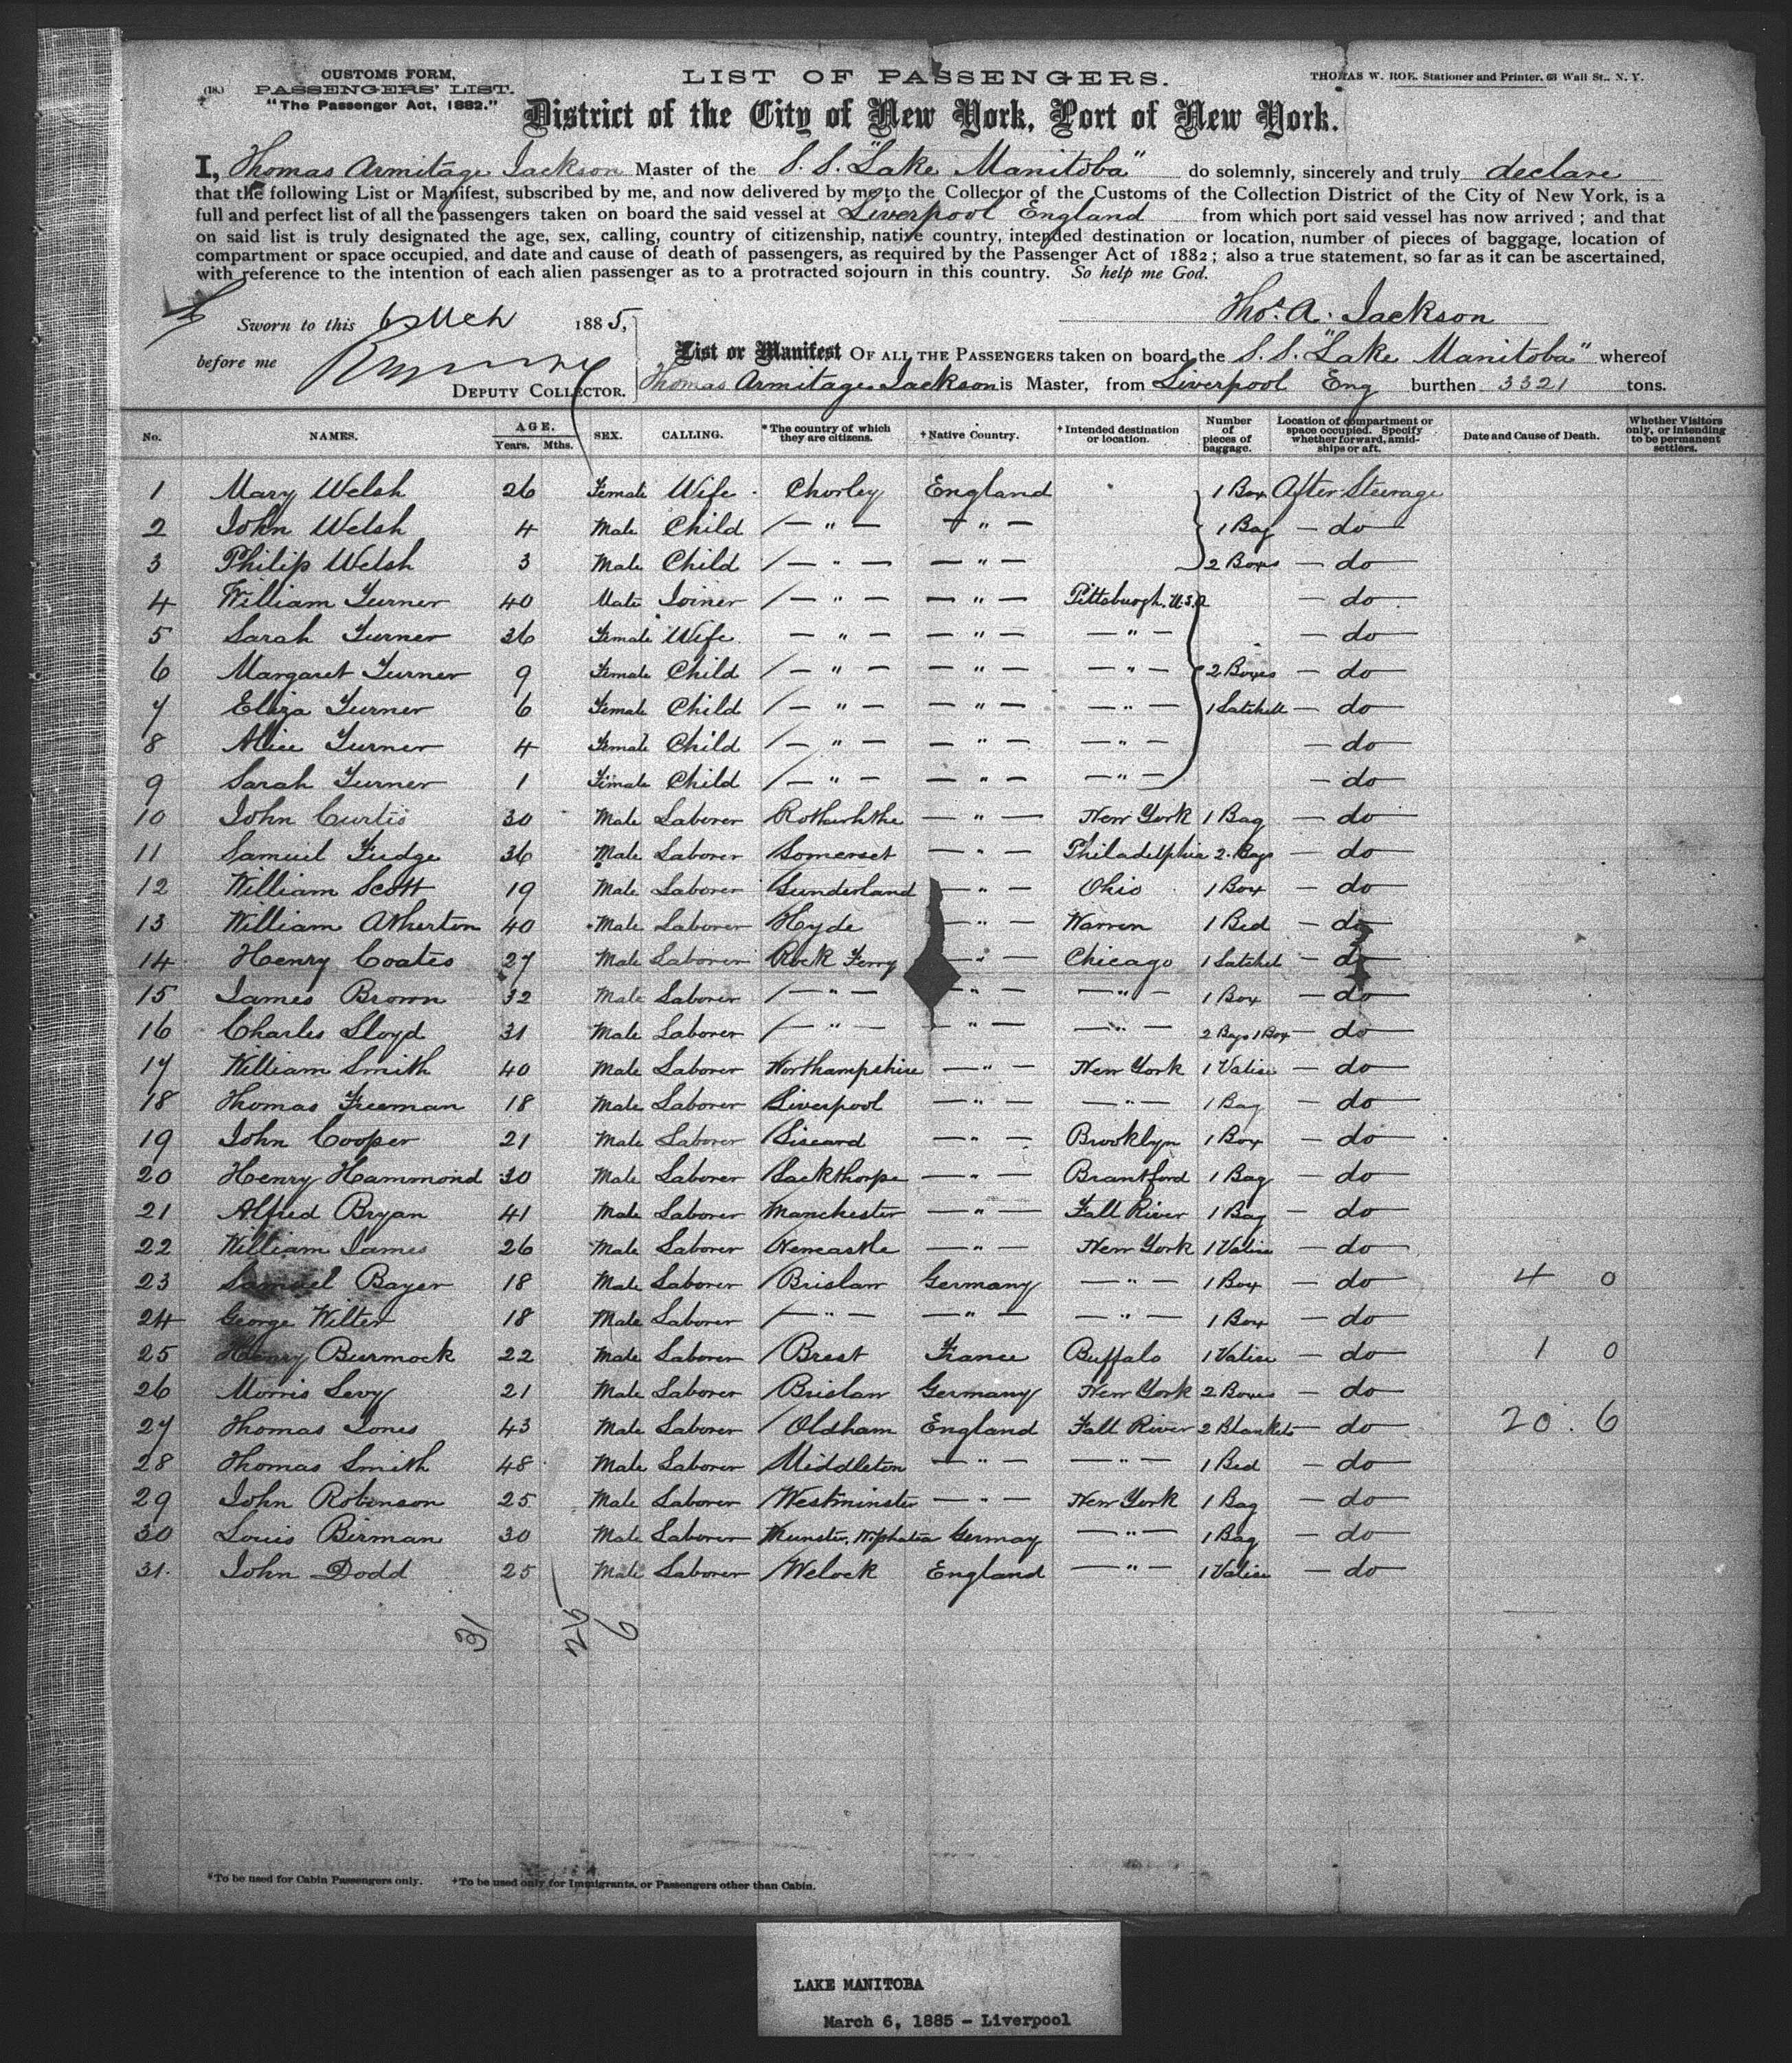 (18.)
CUSTOMS FORM,
PASSENGERS' LIST.
"The Passenger Act, 1882."
LIST OF PASSENGERS.
THOMAS W. ROE. Stationer and Printer, 63 Wall St., N. Y.
District of the City of New York, Port of New York.
I, Thomas Armitage Jackson Master of the S. S. "Lake Manitoba" do solemnly, sincerely and truly declare
that the following List or Manifest, subscribed by me, and now delivered by me to the Collector of the Customs of the Collection District of the City of New York, is a
full and perfect list of all the passengers taken on board the said vessel at Liverpool England from which port said vessel has now arrived; and that
on said list is truly designated the age, sex, calling, country of citizenship, native country, intended destination or location, number of pieces of baggage, location of
compartment or space occupied, and date and cause of death of passengers, as required by the Passenger Act of 1882; also a true statement, so far as it can be ascertained,
with reference to the intention of each alien passenger as to a protracted sojourn in this country. So help me God.
Thos. A. Jackson
Sworn to this 6 Mch 1885,
before me
DEPUTY COLLECTOR.
List or Manifest OF ALL THE PASSENGERS taken on board the S. S. "Lake Manitoba" whereof
Thomas Armitage Jackson is Master, from Liverpool Eng burthen 3321 tons.
No. NAMES. AGE. Years. Mths. SEX. CALLING. *The country of which they are citizens. †Native Country. †Intended destination or location. Number of pieces of baggage. Location of compartment or space occupied. Specify whether forward, amidships or aft. Date and Cause of Death. Whether Visitors only, or intending to be permanent settlers.
1 Mary Welsh 26 Female Wife Chorley England 1 Box After Steerage
2 John Welsh 4 Male Child — " — — " — 1 Bag — do —
3 Philip Welsh 3 Male Child — " — — " — 2 Boxes — do —
4 William Turner 40 Male Joiner — " — — " — Pittsburgh. U.S.A — do —
5 Sarah Turner 36 Female Wife — " — — " — — " — — do —
6 Margaret Turner 9 Female Child — " — — " — — " — 2 Boxes — do —
7 Eliza Turner 6 Female Child — " — — " — — " — 1 Satchell — do —
8 Alice Turner 4 Female Child — " — — " — — " — — do —
9 Sarah Turner 1 Female Child — " — — " — — " — — do —
10 John Curtis 30 Male Laborer — " — New York 1 Bag — do —
11 Samuel Fudge 36 Male Laborer Somerset — " — Philadelphia 2 Bags — do —
12 William Scott 19 Male Laborer Sunderland — " — Ohio 1 Box — do —
13 William Atherton 40 Male Laborer Hyde — " — Warren 1 Bed — do
14 Henry Coates 27 Male Laborer Rock Ferry — " — Chicago 1 Satchel — do
15 James Brown 32 Male Laborer — " — — " — — " — 1 Box — do
16 Charles Lloyd 31 Male Laborer — " — — " — — " — 2 Bags 1 Box — do —
17 William Smith 40 Male Laborer Northampshire — " — New York 1 Valise — do —
18 Thomas Freeman 18 Male Laborer Liverpool — " — — " — 1 Bag — do —
19 John Cooper 21 Male Laborer Liscard — " — Brooklyn 1 Box — do —
20 Henry Hammond 30 Male Laborer Sackthorpe — " — Brantford 1 Bag — do —
21 Alfred Bryan 41 Male Laborer Manchester — " — Fall River 1 Bag — do —
22 William James 26 Male Laborer Newcastle — " — New York 1 Valise — do —
23 Samuel Bayer 18 Male Laborer Brislaw Germany — " — 1 Box — do — 4 0
24 George Wilter 18 Male Laborer — " — — " — — " — 1 Box — do —
25 Henry Burmock 22 Male Laborer Brest France Buffalo 1 Valise — do — 1 0
26 Morris Levy 21 Male Laborer Brislaw Germany New York 2 Boxes — do —
27 Thomas Jones 43 Male Laborer Oldham England Fall River 2 Blankets — do — 20. 6
28 Thomas Smith 48 Male Laborer Middleton — " — — " — 1 Bed — do —
29 John Robinson 25 Male Laborer Westminster — " — New York 1 Bag — do —
30 Louis Birman 30 Male Laborer Munster, Germay — " — 1 Bag — do —
31. John Dodd 25 Male Laborer Welock England — " — 1 Valise — do —
31 6
*To be used for Cabin Passengers only. †To be used only for Immigrants, or Passengers other than Cabin.
LAKE MANITOBA
March 6, 1885 - Liverpool